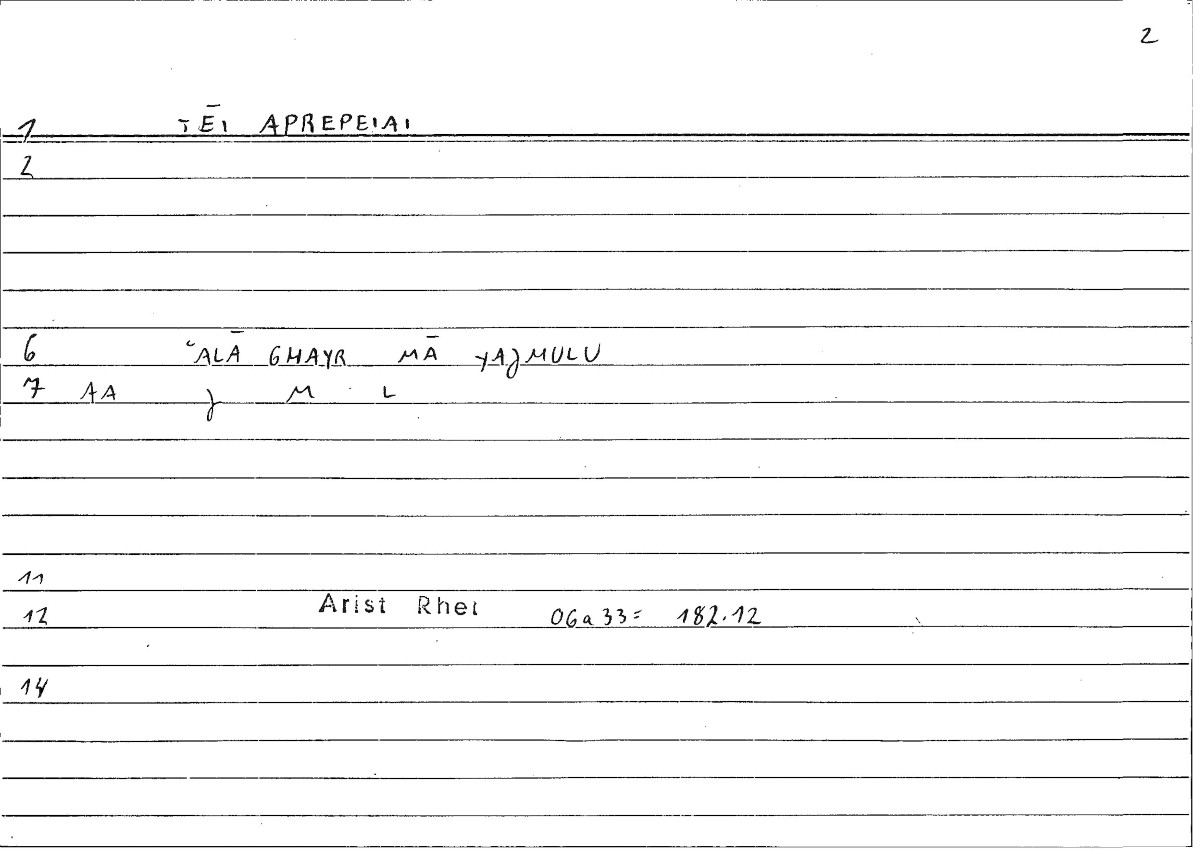 2
1 TĒI APREPEIAI
2
6 ʿALĀ GHAYR MĀ YAJMULU
7 AA J M L
11
12 Arist Rhet 06a33= 182.12
14